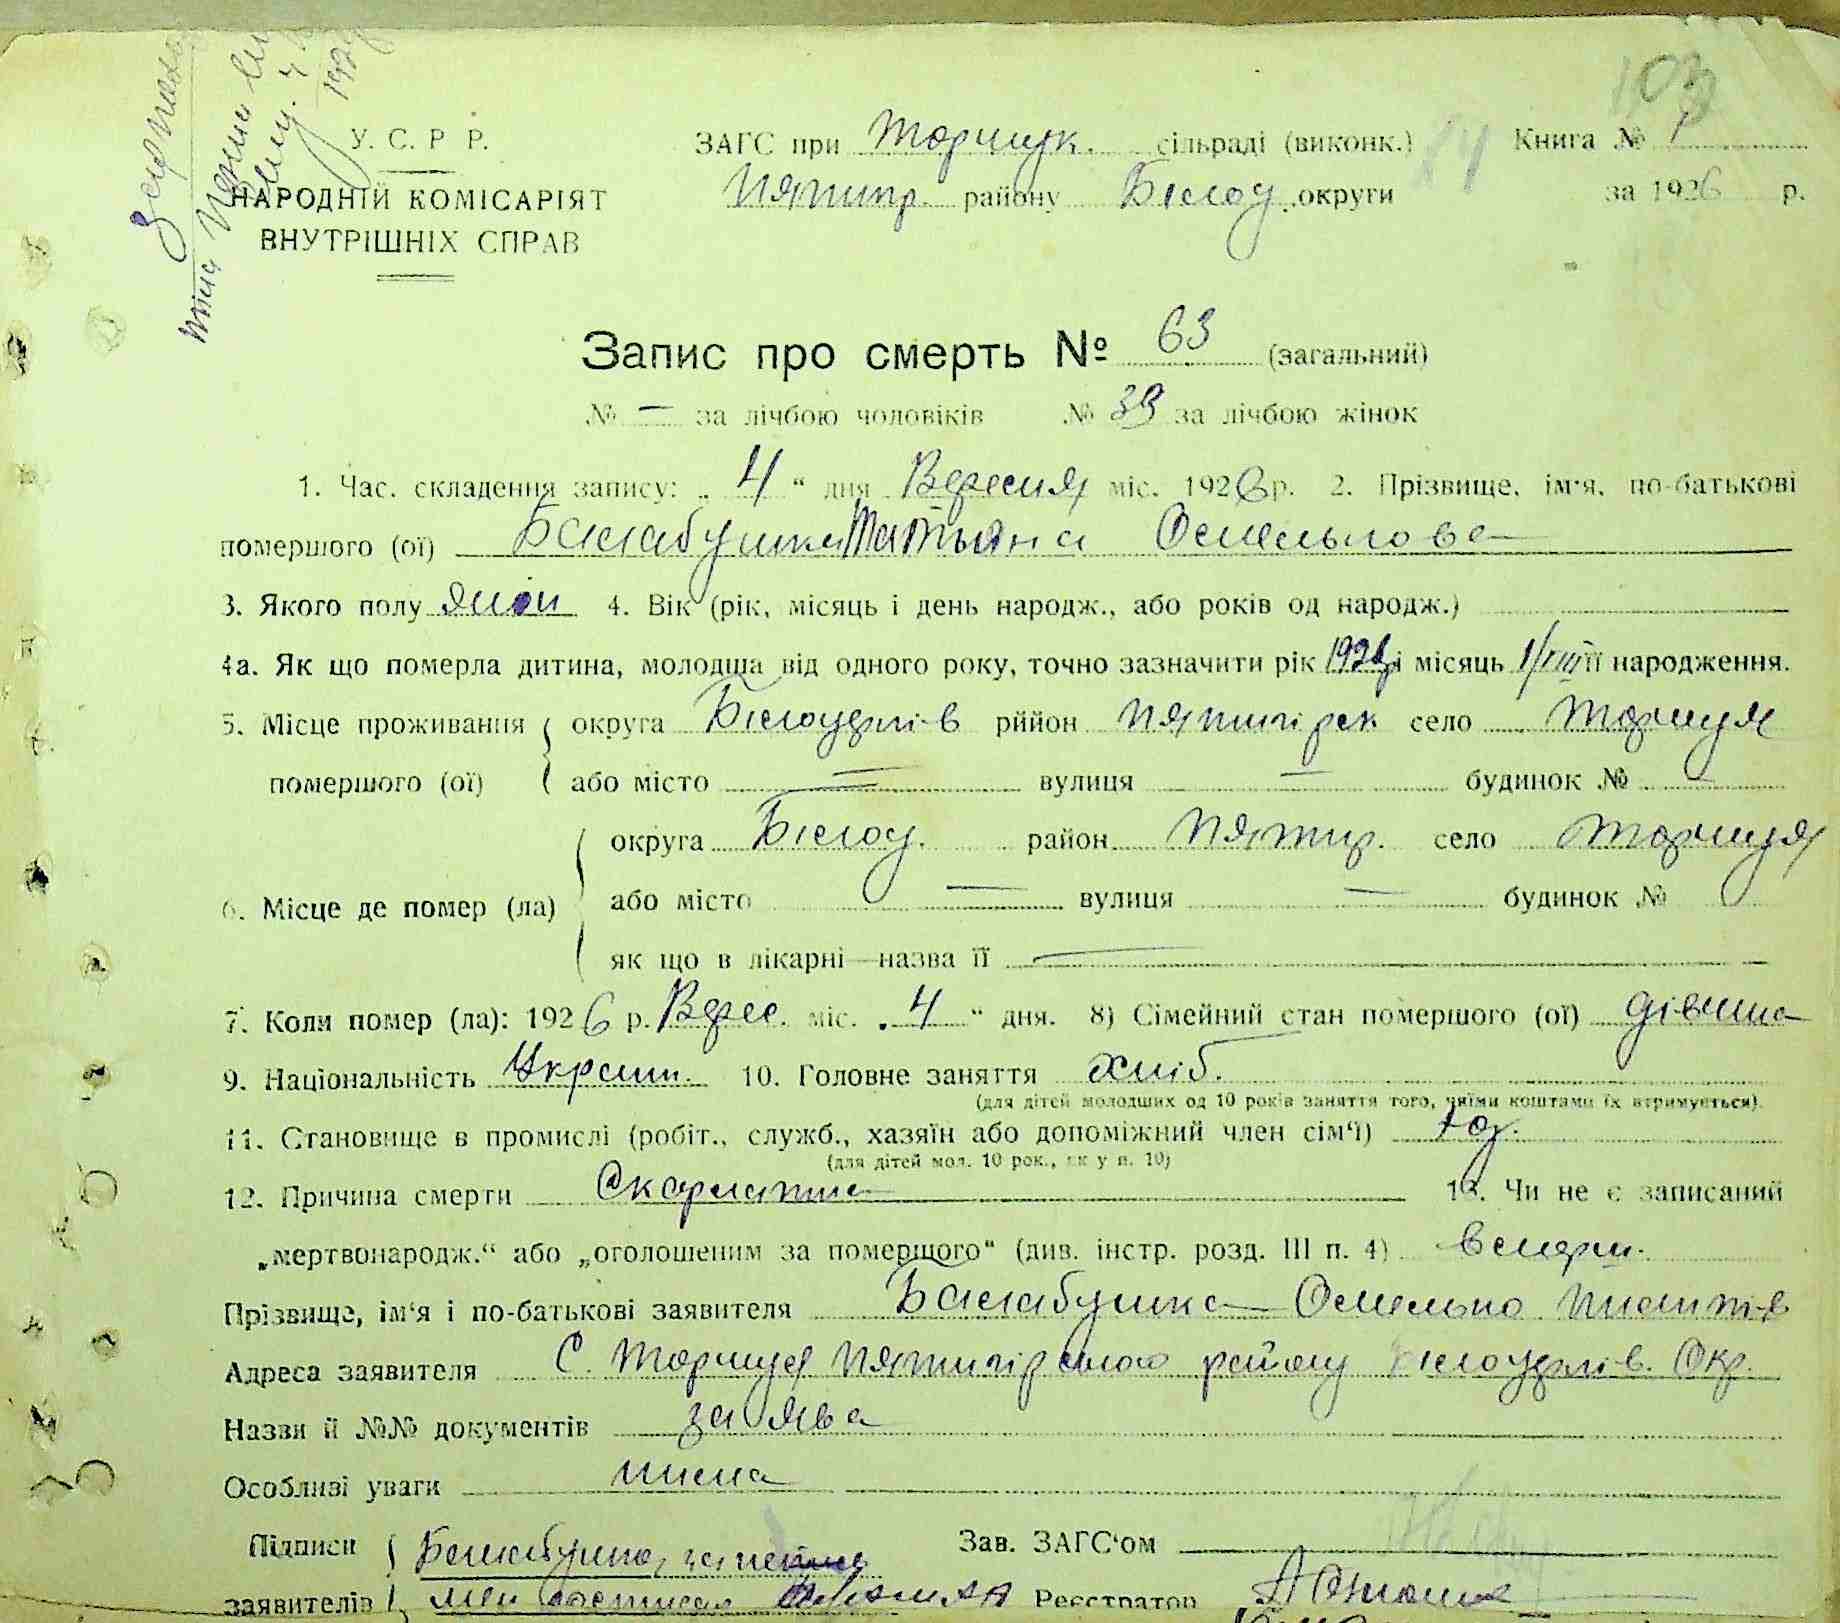 103
У. С. Р Р.
НАРОДНІЙ КОМІСАРІЯТ
ВНУТРІШНІХ СПРАВ
ЗАГС при Торчицк. сільраді (виконк.) Книга № 1
Пятигір. району Білоц. округи за 1926 р.
Запис про смерть № 63 (загальний)
№ — за лічбою чоловіків № 39 за лічбою жінок
1. Час. складення запису: „ 4 “ дня Вересня міс. 1926 р. 2. Прізвище, ім'я, по-батькові
помершого (ої) Балабушка Татьяна Омельлова
3. Якого полу жіноч 4. Вік (рік, місяць і день народж., або років од народж.)
4а. Як що померла дитина, молодша від одного року, точно зазначити рік 1926 і місяць 1/VIII її народження.
5. Місце проживання округа Білоцерків рййон Пятигірск село Торчиця
помершого (ої) або місто — вулиця — будинок № —
округа Білоц. район Пятигір. село Торчиця
6. Місце де помер (ла) або місто — вулиця — будинок №
як що в лікарні—назва її —
7. Коли помер (ла): 1926 р. Верес. міс. „ 4 “ дня. 8) Сімейний стан помершого (ої) дівчина
9. Національність Україн. 10. Головне заняття хліб.
(для дітей молодших од 10 років заняття того, чиїми коштами їх втримується).
11. Становище в промислі (робіт., служб., хазяїн або допоміжний член сім‘ї) хаз.
(для дітей мол. 10 рок., як у п. 10)
12. Причина смерти Скарлатина 13. Чи не є записаний
„мертвонародж.“ або „оголошеним за померщого“ (див. інстр. розд. III п. 4)
Прізвище, ім‘я і по-батькові заявителя Балабушка Омелько
Адреса заявителя С. Торчиця Пятигірського району Білоцерків. Окр.
Назви й №№ документів заява
Особлизі уваги нима
Підписи Балабушка, Зав. ЗАГС‘ом
заявителів Реєстратор